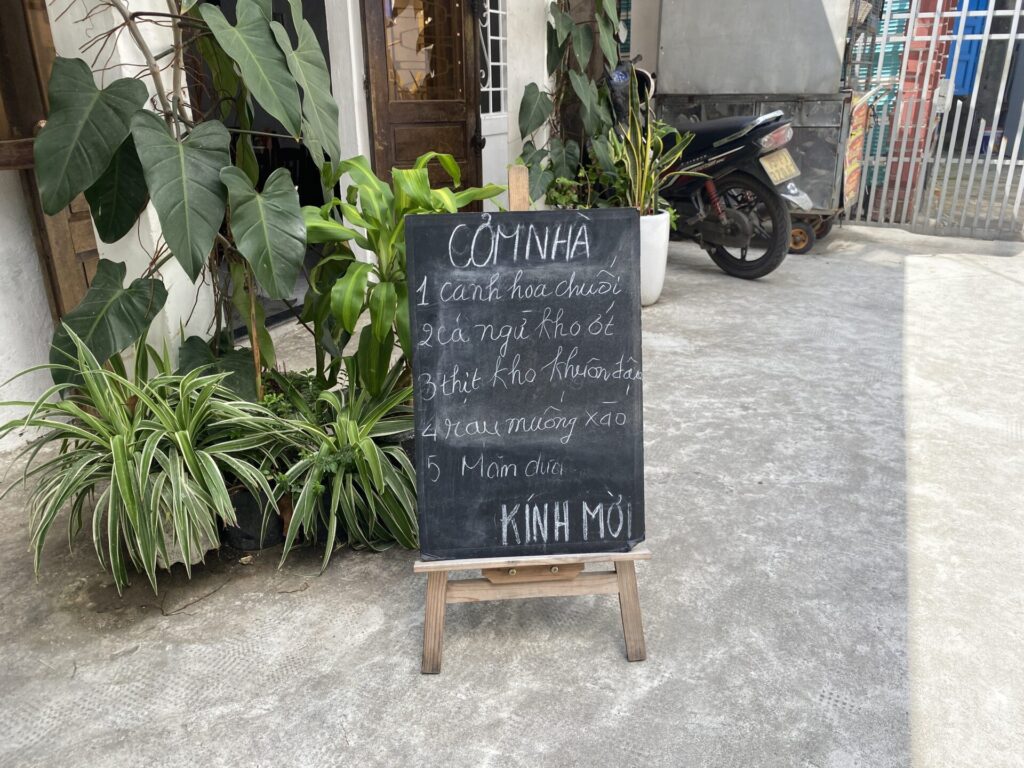 CƠM NHÀ
1 canh hoa chuối
2 cá ngừ kho ớt
3 thịt kho khuôn đậu
4 rau muống xào
5 Mắm dưa
KÍNH MỜI